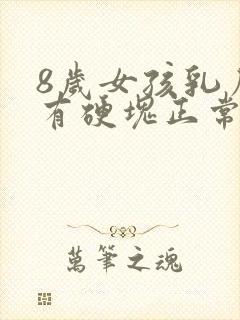 8歲女孩乳
有硬塊正常
萬筆之魂